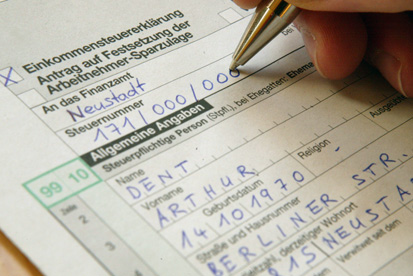 X Einkommensteuererklärung
Antrag auf Festsetzung der
Arbeitnehmer-Sparzulage
An das Finanzamt
Neustadt
Steuernummer
171/000/000
bei
Allgemeine Angaben
Steuerpflichtige Person (Stpfl.), bei Ehegatten: Ehema
99 10
Name
DENT
Vorname
ARTHUR
Zeile
2
Geburtsdatum
Religion
14101970 -
3
Straße und Hausnummer
BERLINER STR.
derzeitiger Wohnort
Verheiratet seit dem
4
915 NEUSTA